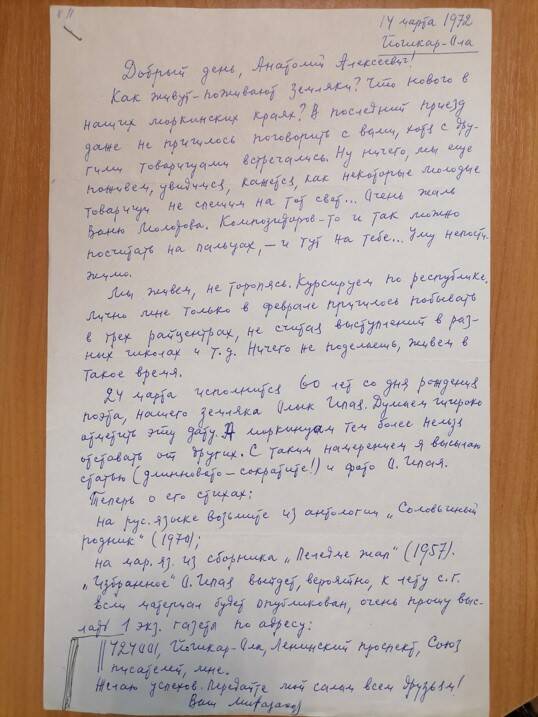 14 марта 1972
Йошкар-Ола
Добрый день, Анатолий Алексеевич!
Как живут-поживают земляки? Что нового в
наших моркинских краях? В последний приезд
даже не пришлось поговорить с вами, хотя с дру-
гими товарищами встречались. Ну ничего, мы еще
поживем, увидимся, кажется, как некоторые молодые
товарищи не спешим на тот свет... Очень жаль
Ваню Молотова. Композиторов-то и так можно
посчитать на пальцах, — и тут на тебе... Уму непости-
жимо.
Мы живем, не торопясь. Курсируем по республике.
Лично мне только в феврале пришлось побывать
в трех райцентрах, не считая выступлений в раз-
ных школах и т.д. Ничего не поделаешь, живем в
такое время.
24 марта исполнится 60 лет со дня рождения
поэта, нашего земляка Олык Ипая. Думаем широко
отметить эту дату. А моркинцам тем более нельзя
отставать от других. С таким намерением я высылаю
статью (длинновато - сократите!) и фото О. Ипая.
Теперь о его стихах:
на рус. языке возьмите из антологии „Соловьиный
родник" (1970);
на мар. яз. из сборника „Пеледме жап" (1957).
„Избранное" О. Ипая выйдет, вероятно, к лету с.г.
Если материал будет опубликован, очень прошу выс-
лать 1 экз. газеты по адресу:
424001, Йошкар-Ола, Ленинский проспект, Союз
писателей, мне.
Желаю успехов. Передайте мой салам всем друзьям!
Ваш